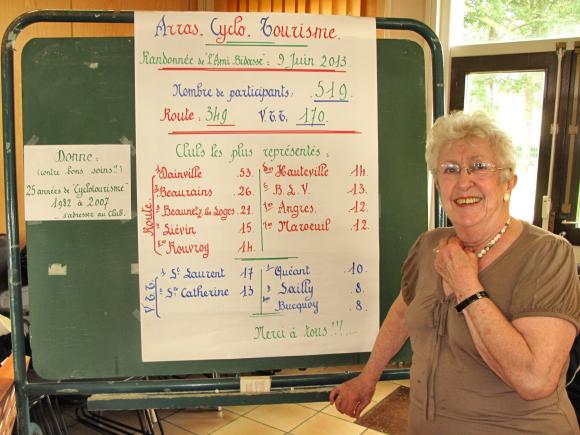 Arras. Cyclo. Tourisme.
Randonnée de "l'Ami Bidasse": 9 Juin 2013.
Nombre de participants: 519
Route: 349 V.T.T. 170
Clubs les plus représentés:
Route:
Dainville 53.
Beaurains 26.
Beaumetz les Loges 21.
Liévin 15.
Rouvroy 14.
Hauteville 14.
B.L.V. 13.
Angres. 12.
Maroeuil. 12.
V.T.T.
St Laurent 17
Ste Catherine 13
Quéant. 10.
Sailly. 8.
Bucquoy 8.
Merci à tous!!!....
Donne:
(contre bons soins!!)
25 années de "Cyclotourisme"
1982 à 2007
s'adresser au Club.